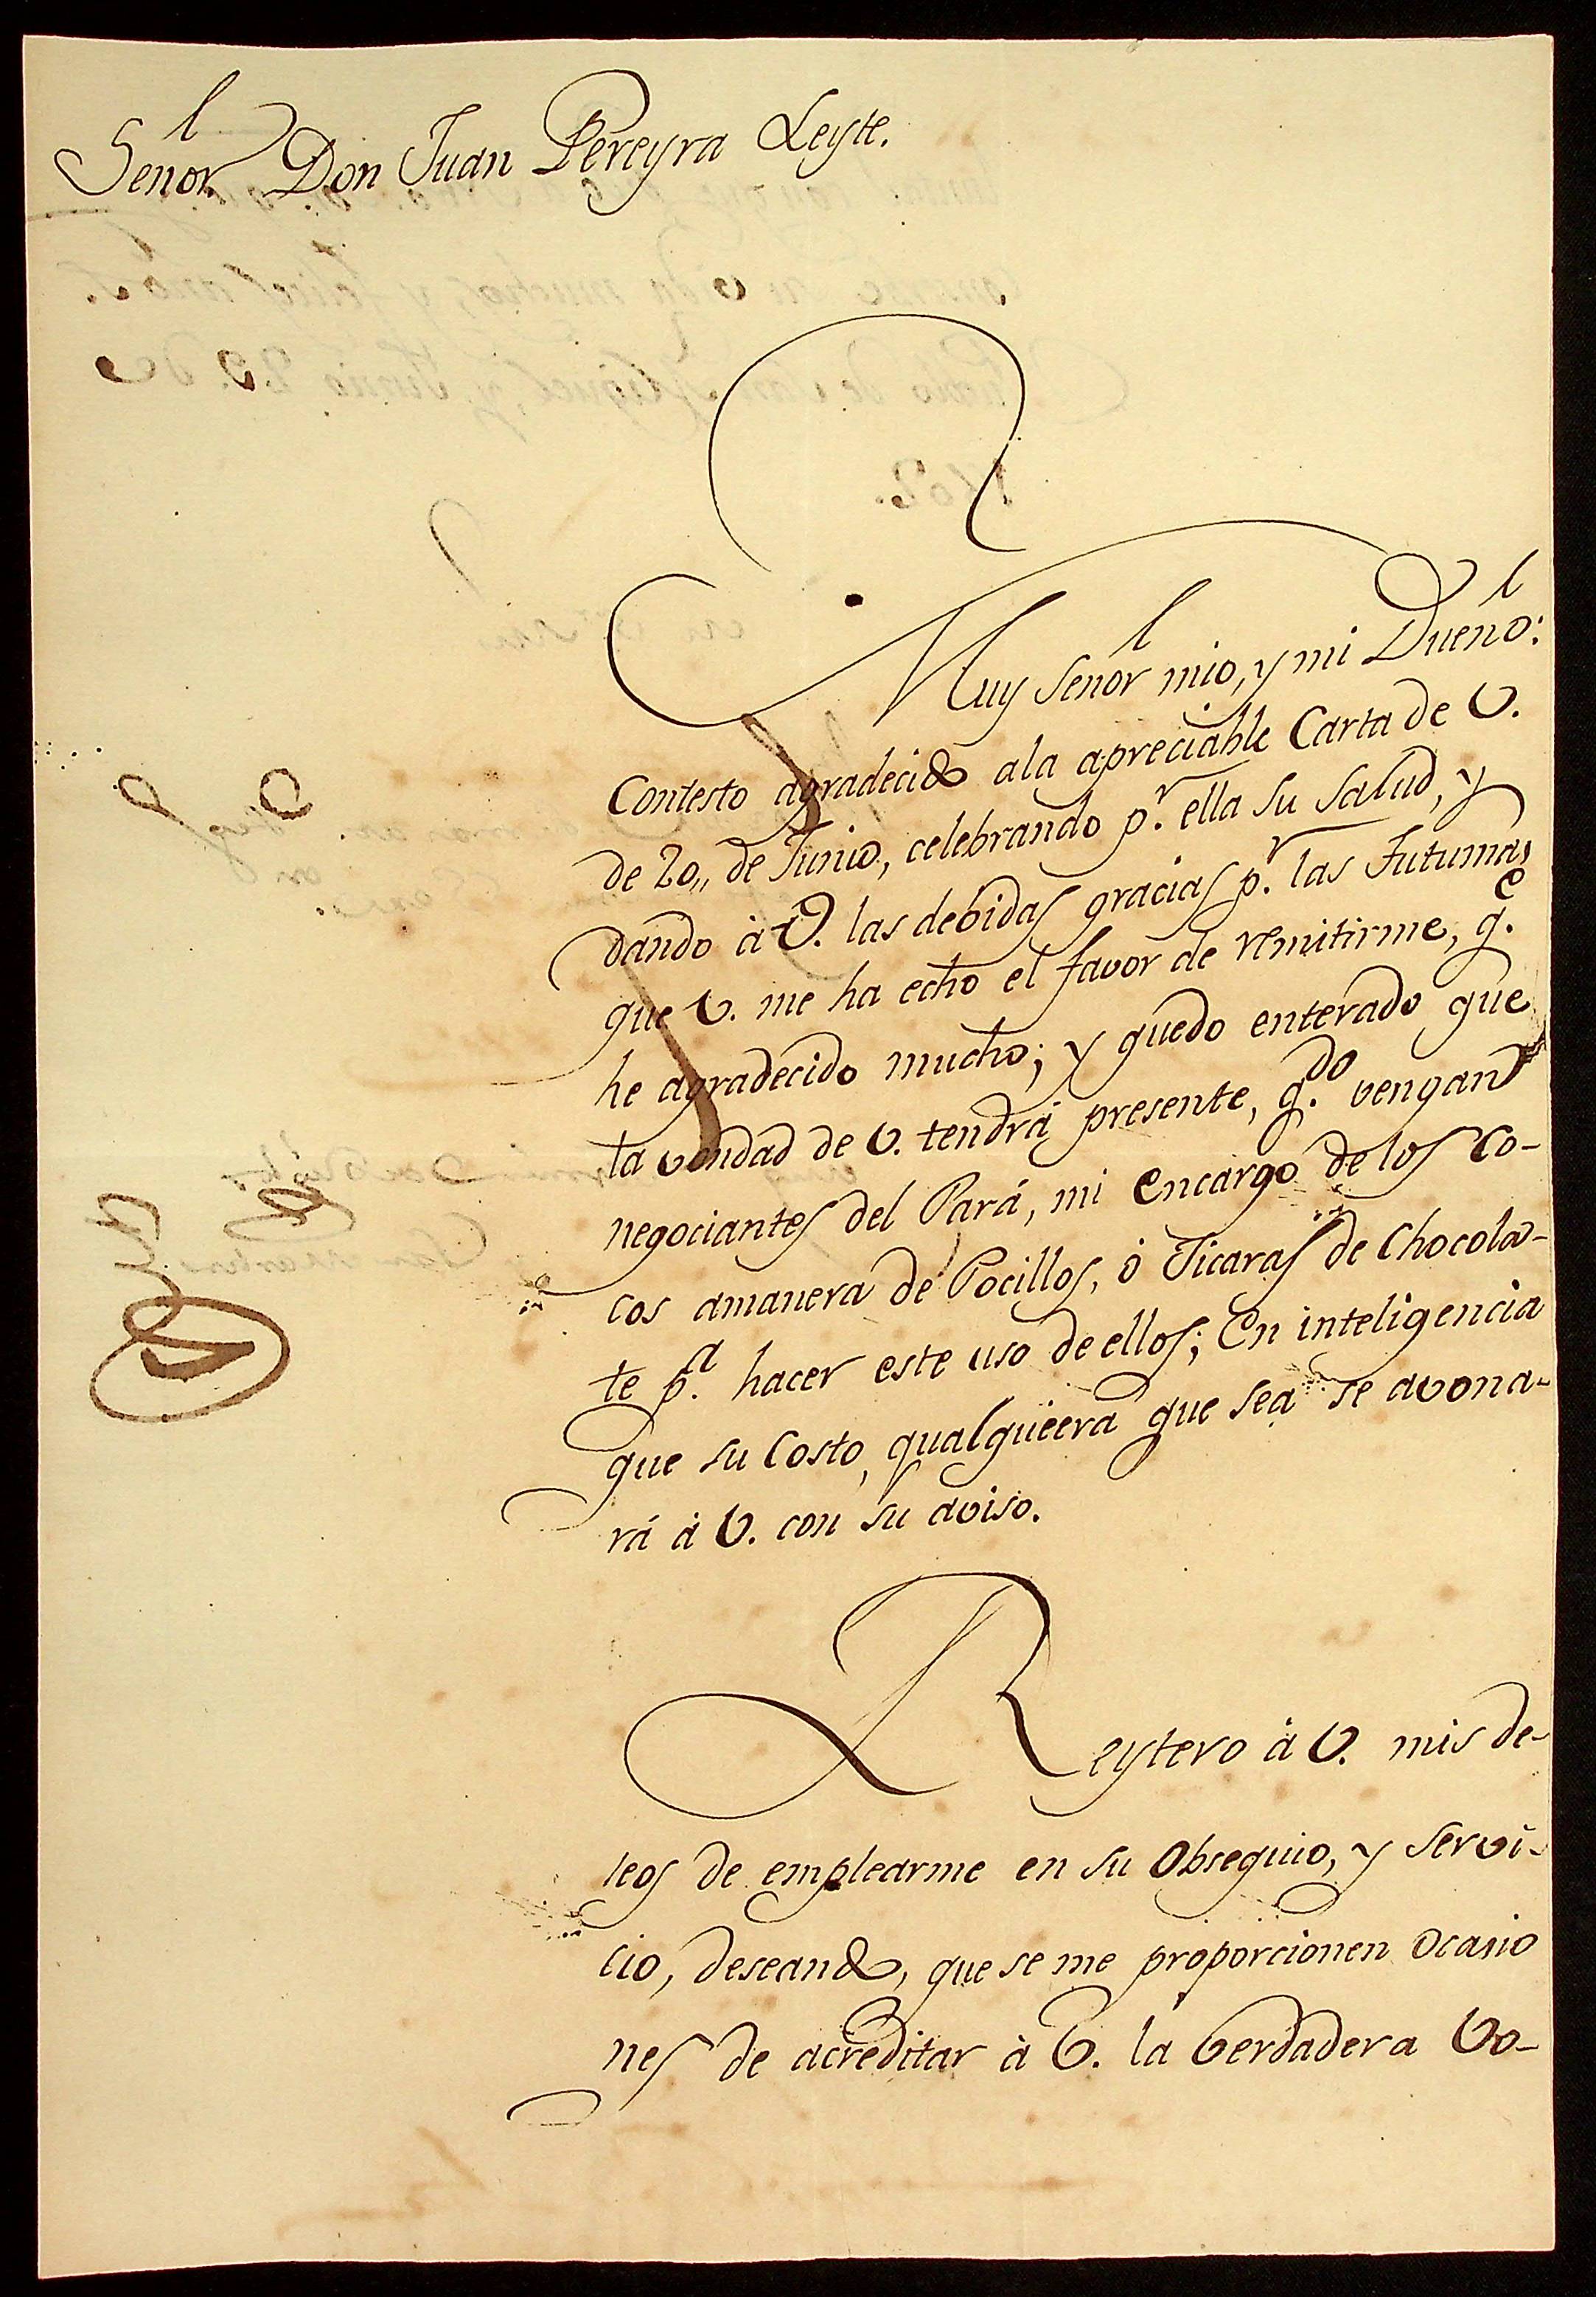 Señor Don Juan Pereyra Leyte.
Muy Señor mio, y mi Dueño:
Contesto agradecido a la apreciable Carta de V.
de 20,, de Junio, celebrando p.r ella su salud, y
dando à V. las debidas gracias p.r las Tutumas
que V. me ha echo el favor de remitirme, q.e
he agradecido mucho; y quedo enterado que
la vondad de V. tendrá presente, q.do vengan
negociantes del Pará, mi encargo de los Co-
cos amanera de Pocillos, ò Jicaras de Chocola-
te p.a hacer este uso de ellos; En inteligencia
que su Costo, qualquiera que sea se avona-
rá à V. con su aviso.
Reytero à V. mis de-
seos de emplearme en su Obsequio, y servi-
cio, deseando, que se me proporcionen Ocasio
nes de acreditar à V. la verdadera Vo-